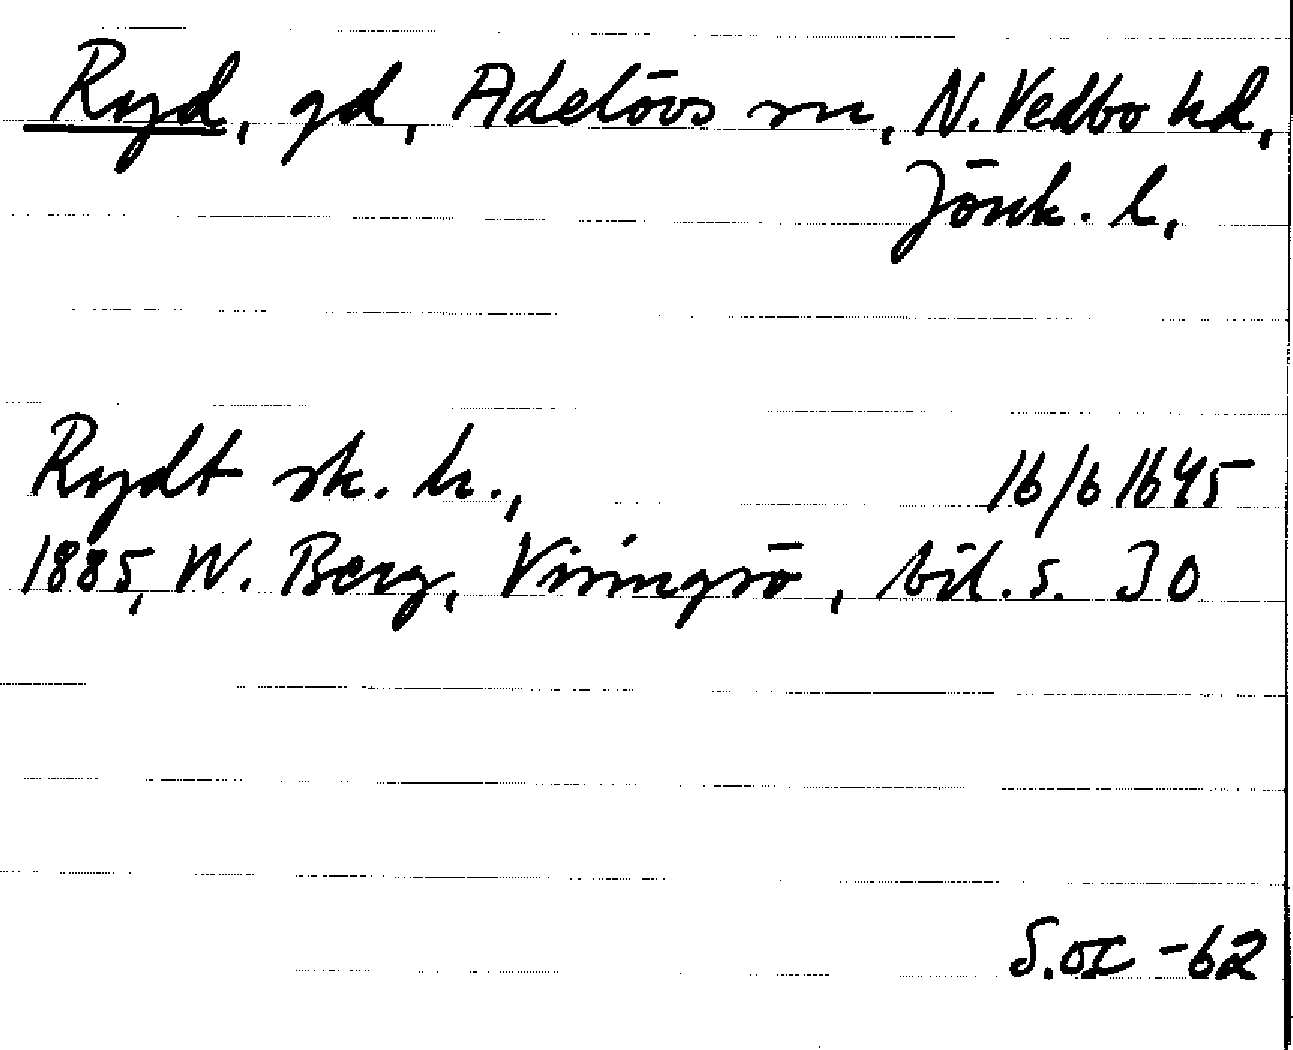 Ryd, gd, Adelövs sn, N. Vedbo hd,
Jönk. l.
Rydt sk. h., 16/6 1645
1885, W. Berg, Visingsö, bil. s. 30
S.OI -62